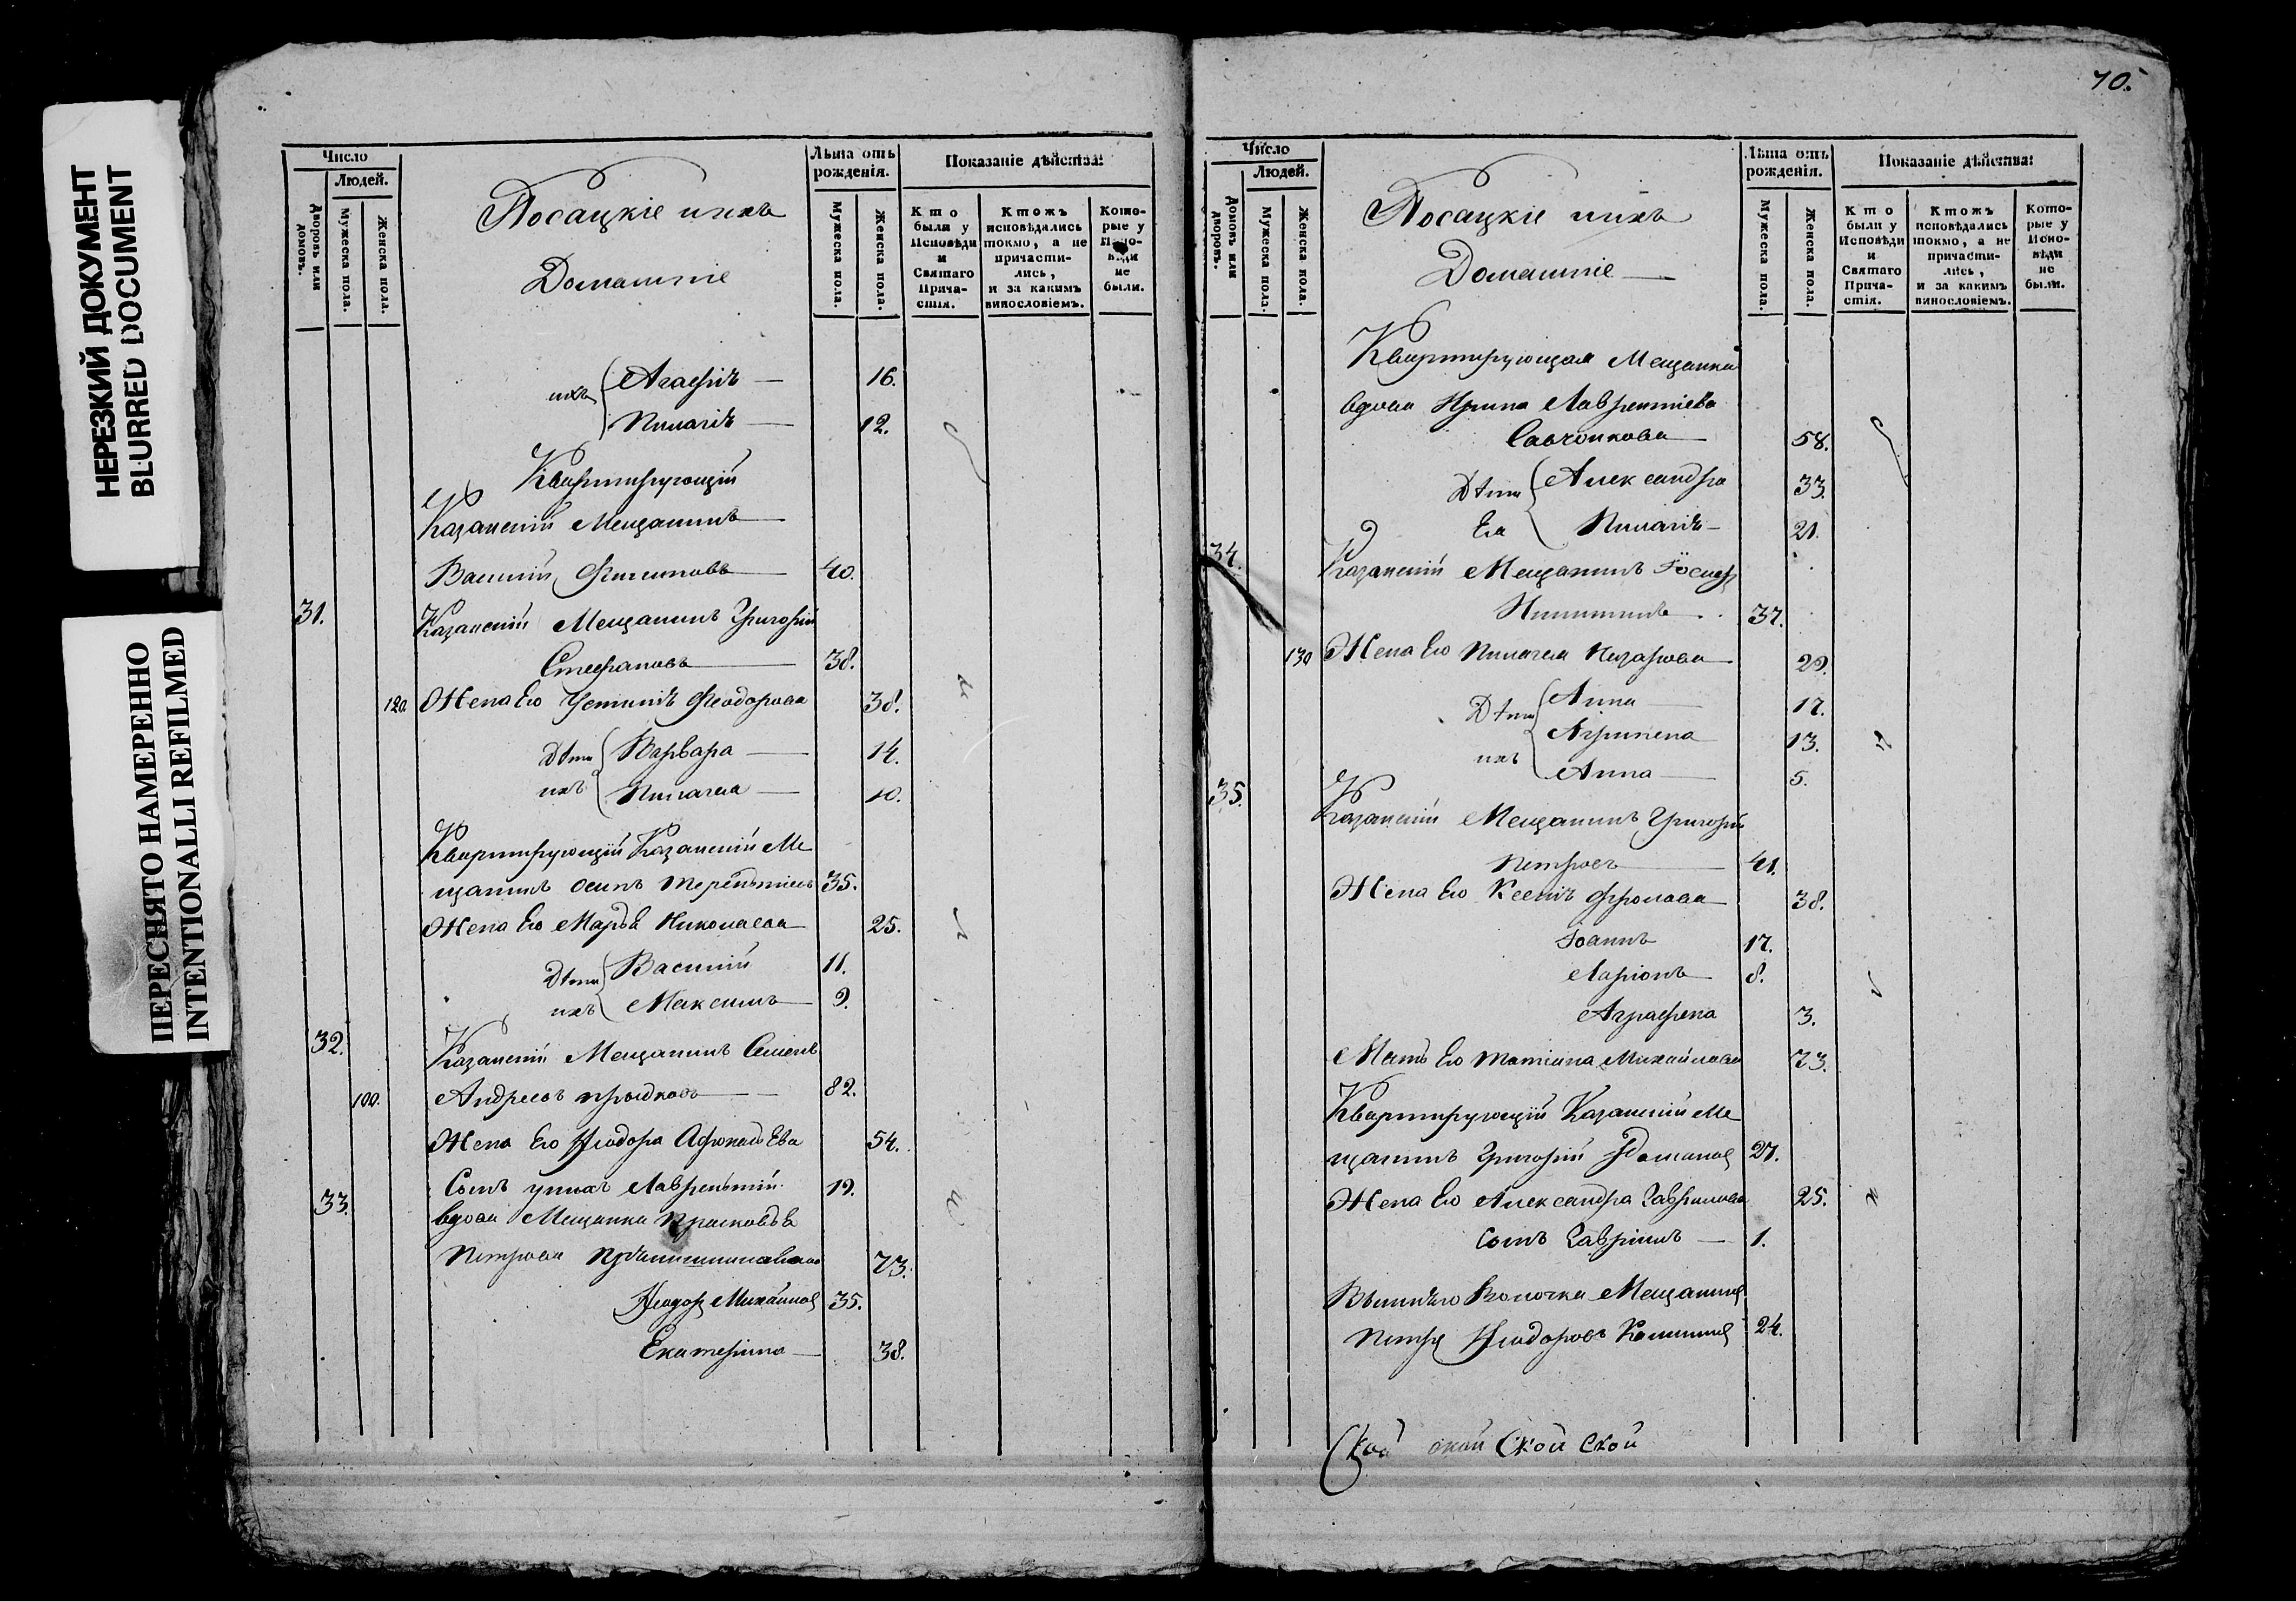 НЕРЕЗКИЙ ДОКУМЕНТ
BLURRED DOCUMENT
ПЕРЕСНЯТО НАМЕРЕННО
INTENTIONALLI REFILMED
Число
Людей.
Дворовъ или домовъ.
Мужеска пола.
Женска пола.
Посацкіе и ихъ
Домашніе
Лѣта отъ рожденія.
Мужеска пола.
Женска пола.
Показаніе дѣйства:
Кто были у Исповѣди и Святаго Прича-стія.
Ктожъ исповѣдались токмо, а не причасти-лись, и за какимъ винословіемъ.
Кото-рые у Испо-вѣди не были.
ихъ Агафія — 16.
Пилагія — 12.
Квартирующій
Казанскій Мещанинъ
Василій Филиповъ 40.
31. Казанскій Мещанинъ Григорій
Стефановъ 38.
120. Жена Его Устинія Феодорова 38.
Дѣти Варвара — 14.
ихъ Пилагея — 10.
Квартирующій Казанскій Ме
щанинъ Осипъ Терентьевъ 35.
Жена Его Марья Николаева 25.
Дѣти Василій 11.
ихъ Максимъ 9.
32. Казанскій Мещанинъ Семенъ
100. Андреевъ 82.
Жена Его Ѳеодора 54.
Сынъ у нихъ Лаврентій 19.
33. вдова Мещанка Прасковья
Петрова 73.
Ѳеодоръ Михайловъ 35.
Екатерина — 38.
70.
Число
Людей.
Домовъ или дворовъ.
Мужеска пола.
Женска пола.
Посацкіе и ихъ
Домашніе
Лѣта отъ рожденія.
Мужеска пола.
Женска пола.
Показаніе дѣйства:
Кто были у Исповѣди и Святаго Прича-стія.
Ктожъ исповѣдались токмо, а не причасти-лись, и за какимъ винословіемъ.
Кото-рые у Испо-вѣди не были.
Квартирующая Мещанка
вдова Ирина Лаврентіева
Савчонкова 58.
Дѣти Александра 33.
Ея Пилагія 21.
34. Казанскій Мещанинъ Іосифъ
Никитинъ 37.
130 Жена Его Пилагея Назарова 29.
Дѣти Анна 17.
Агрипена 13.
ихъ Анна 5.
35. Казанскій Мещанинъ Григорій
Петровъ 41.
Жена Его Ксенія Фролова 38.
Іоаннъ 17.
Ларіонъ 8.
Аграфена 3.
Мать Его Татіана Михайлова 73.
Квартирующій Казанскій Ме
щанинъ Григорій 27.
Жена Его Александра Гаврилова 25.
Сынъ Гавріилъ — 1.
Вышняго Волочка Мещанинъ
Петръ Ѳеодоровъ 24.
Ской ской Ской Ской